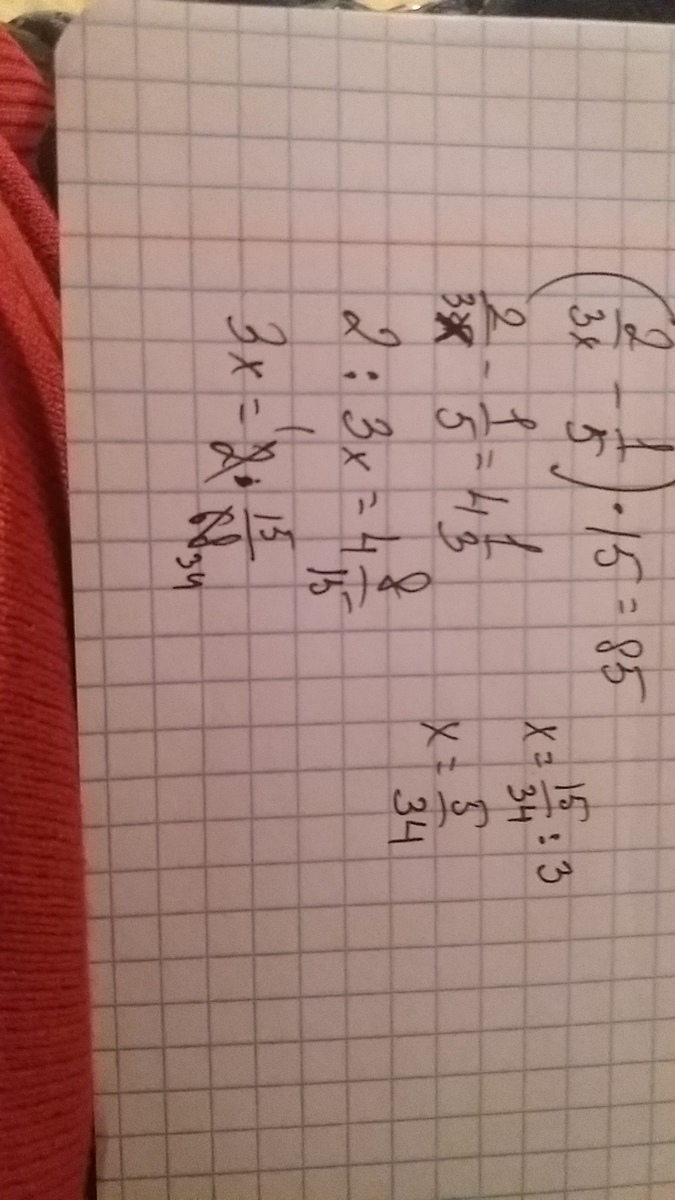 (2/3x - 1/5) · 15 = 85
2/3x - 1/5 = 4 1/3
2 : 3x = 4 8/15
3x = 2 · 15/34
x = 15/34 : 3
x = 5/34